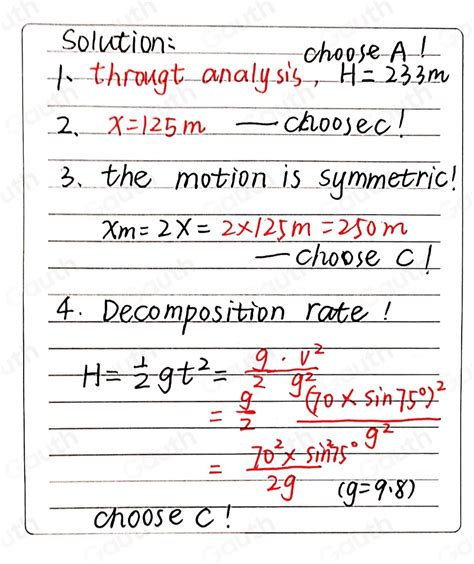 Solution:
choose A!
1. througt analysis, H = 233m
2. x=125m — choose c!
3. the motion is symmetric!
xm = 2x = 2x125m = 250m
— choose C!
4. Decomposition rate!
H = 1/2 gt² = g/2 · v²/g²
= g/2 (70 x sin75°)²/g²
= 70² x sin²75°/2g (g=9.8)
choose C!